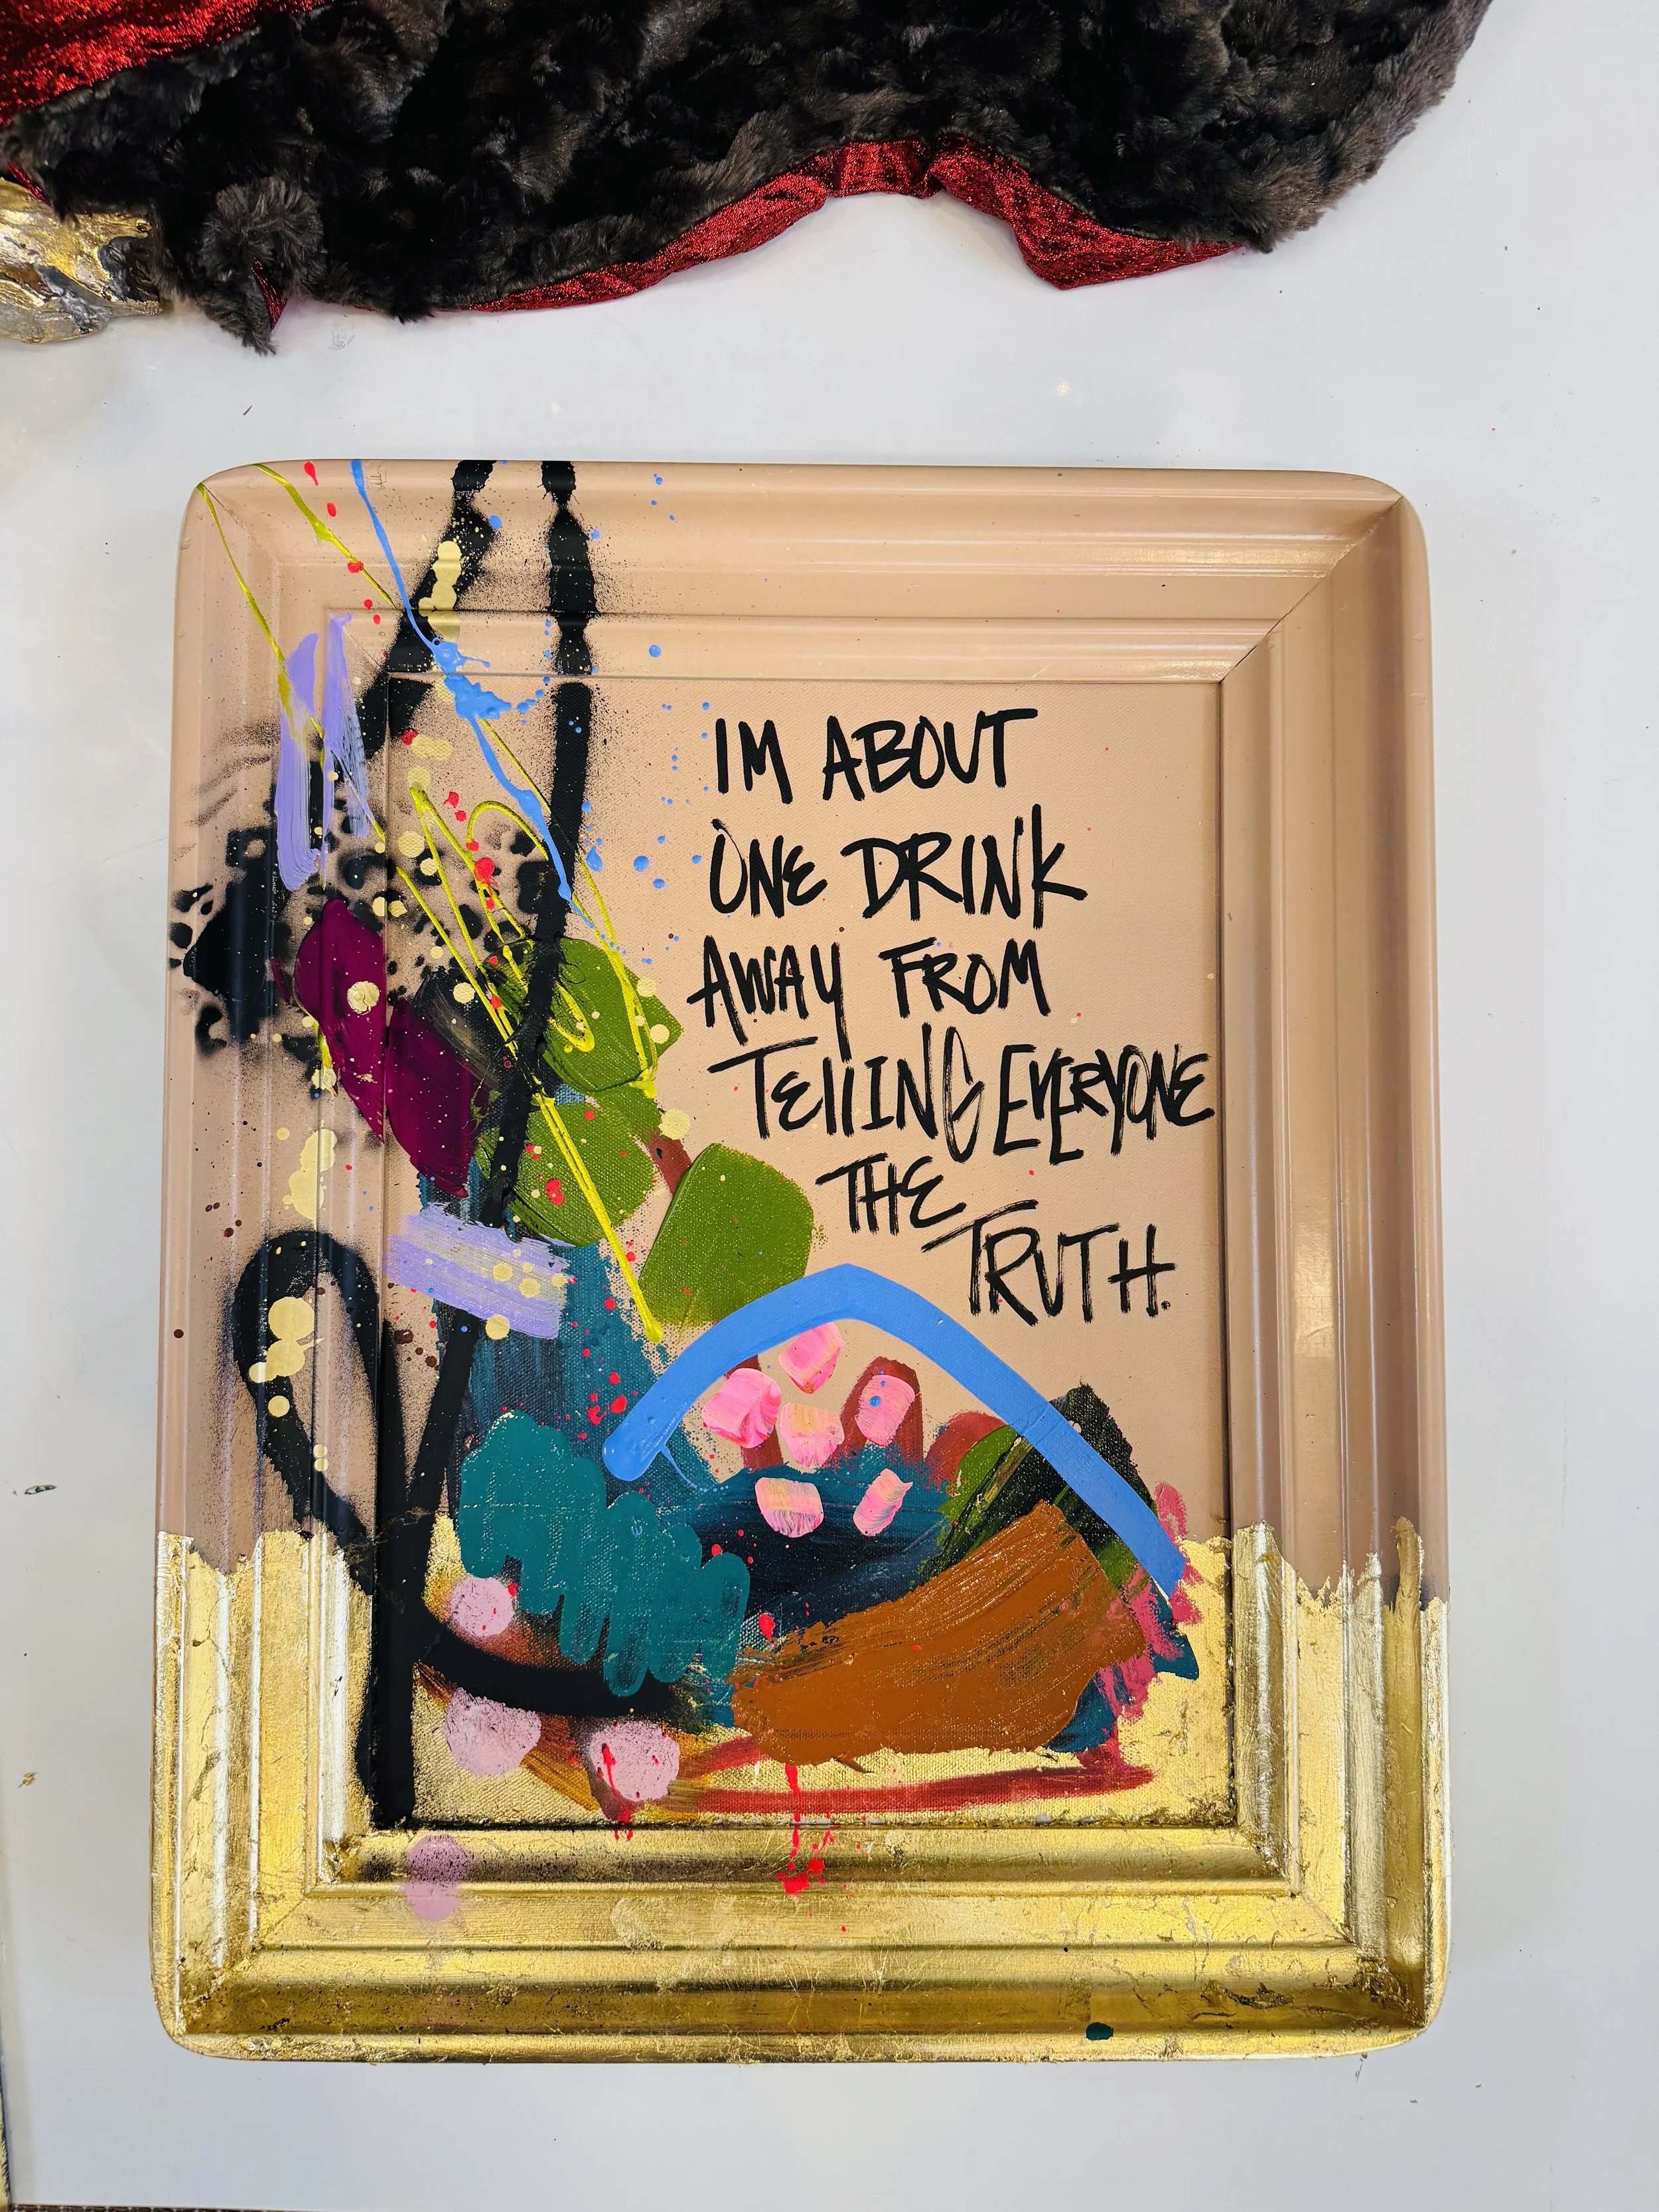 IM ABOUT
ONE DRINK
AWAY FROM
TELLING EVERYONE
THE
TRUTH.